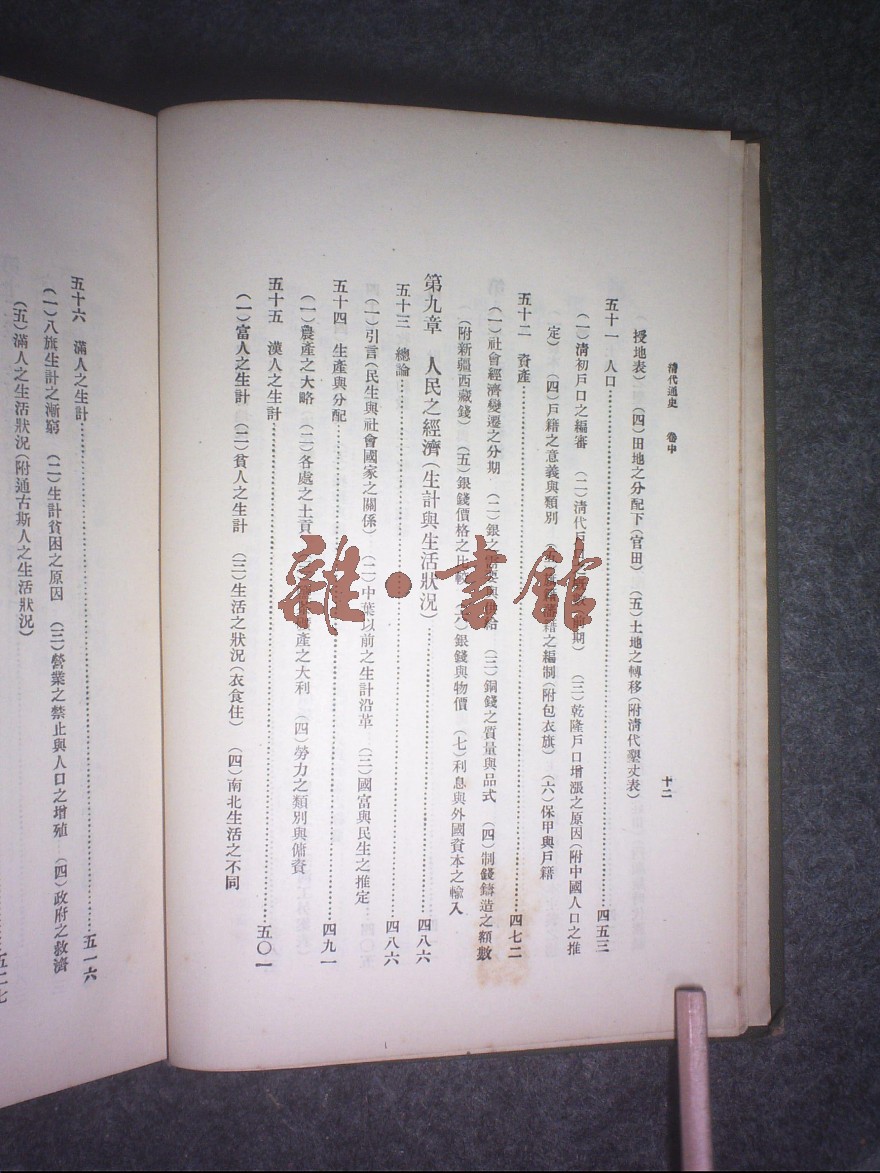 清代通史　卷中
十二
授地表）　（四）田地之分配下（官田）　（五）土地之轉移（附清代墾丈表）
五十一　人口………四五三
（一）清初戶口之編審　（二）清代戶　（三）乾隆戶口增漲之原因（附中國人口之推
定）　（四）戶籍之意義與類別　籍之編制（附包衣旗）　（六）保甲與戶籍
五十二　資產………四七二
（一）社會經濟變遷之分期　（二）銀之　（三）銅錢之質量與品式　（四）制錢鑄造之額數
（附新疆西藏錢）　（五）銀錢價格之比較　（六）銀錢與物價　（七）利息與外國資本之輸入
第九章　人民之經濟（生計與生活狀況）………四八六
五十三　總論………四八六
（一）引言（民生與社會國家之關係）　（二）中葉以前之生計沿革　（三）國富與民生之推定
五十四　生產與分配………四九一
（一）農產之大略　（二）各處之土貢　產之大利　（四）勞力之類別與傭資
五十五　漢人之生計………五〇一
（一）富人之生計　（二）貧人之生計　（三）生活之狀況（衣食住）　（四）南北生活之不同
五十六　滿人之生計………五一六
（一）八旗生計之漸窮　（二）生計貧困之原因　（三）營業之禁止與人口之增殖　（四）政府之救濟
（五）滿人之生活狀況（附通古斯人之生活狀況）
五二七
雜·書館